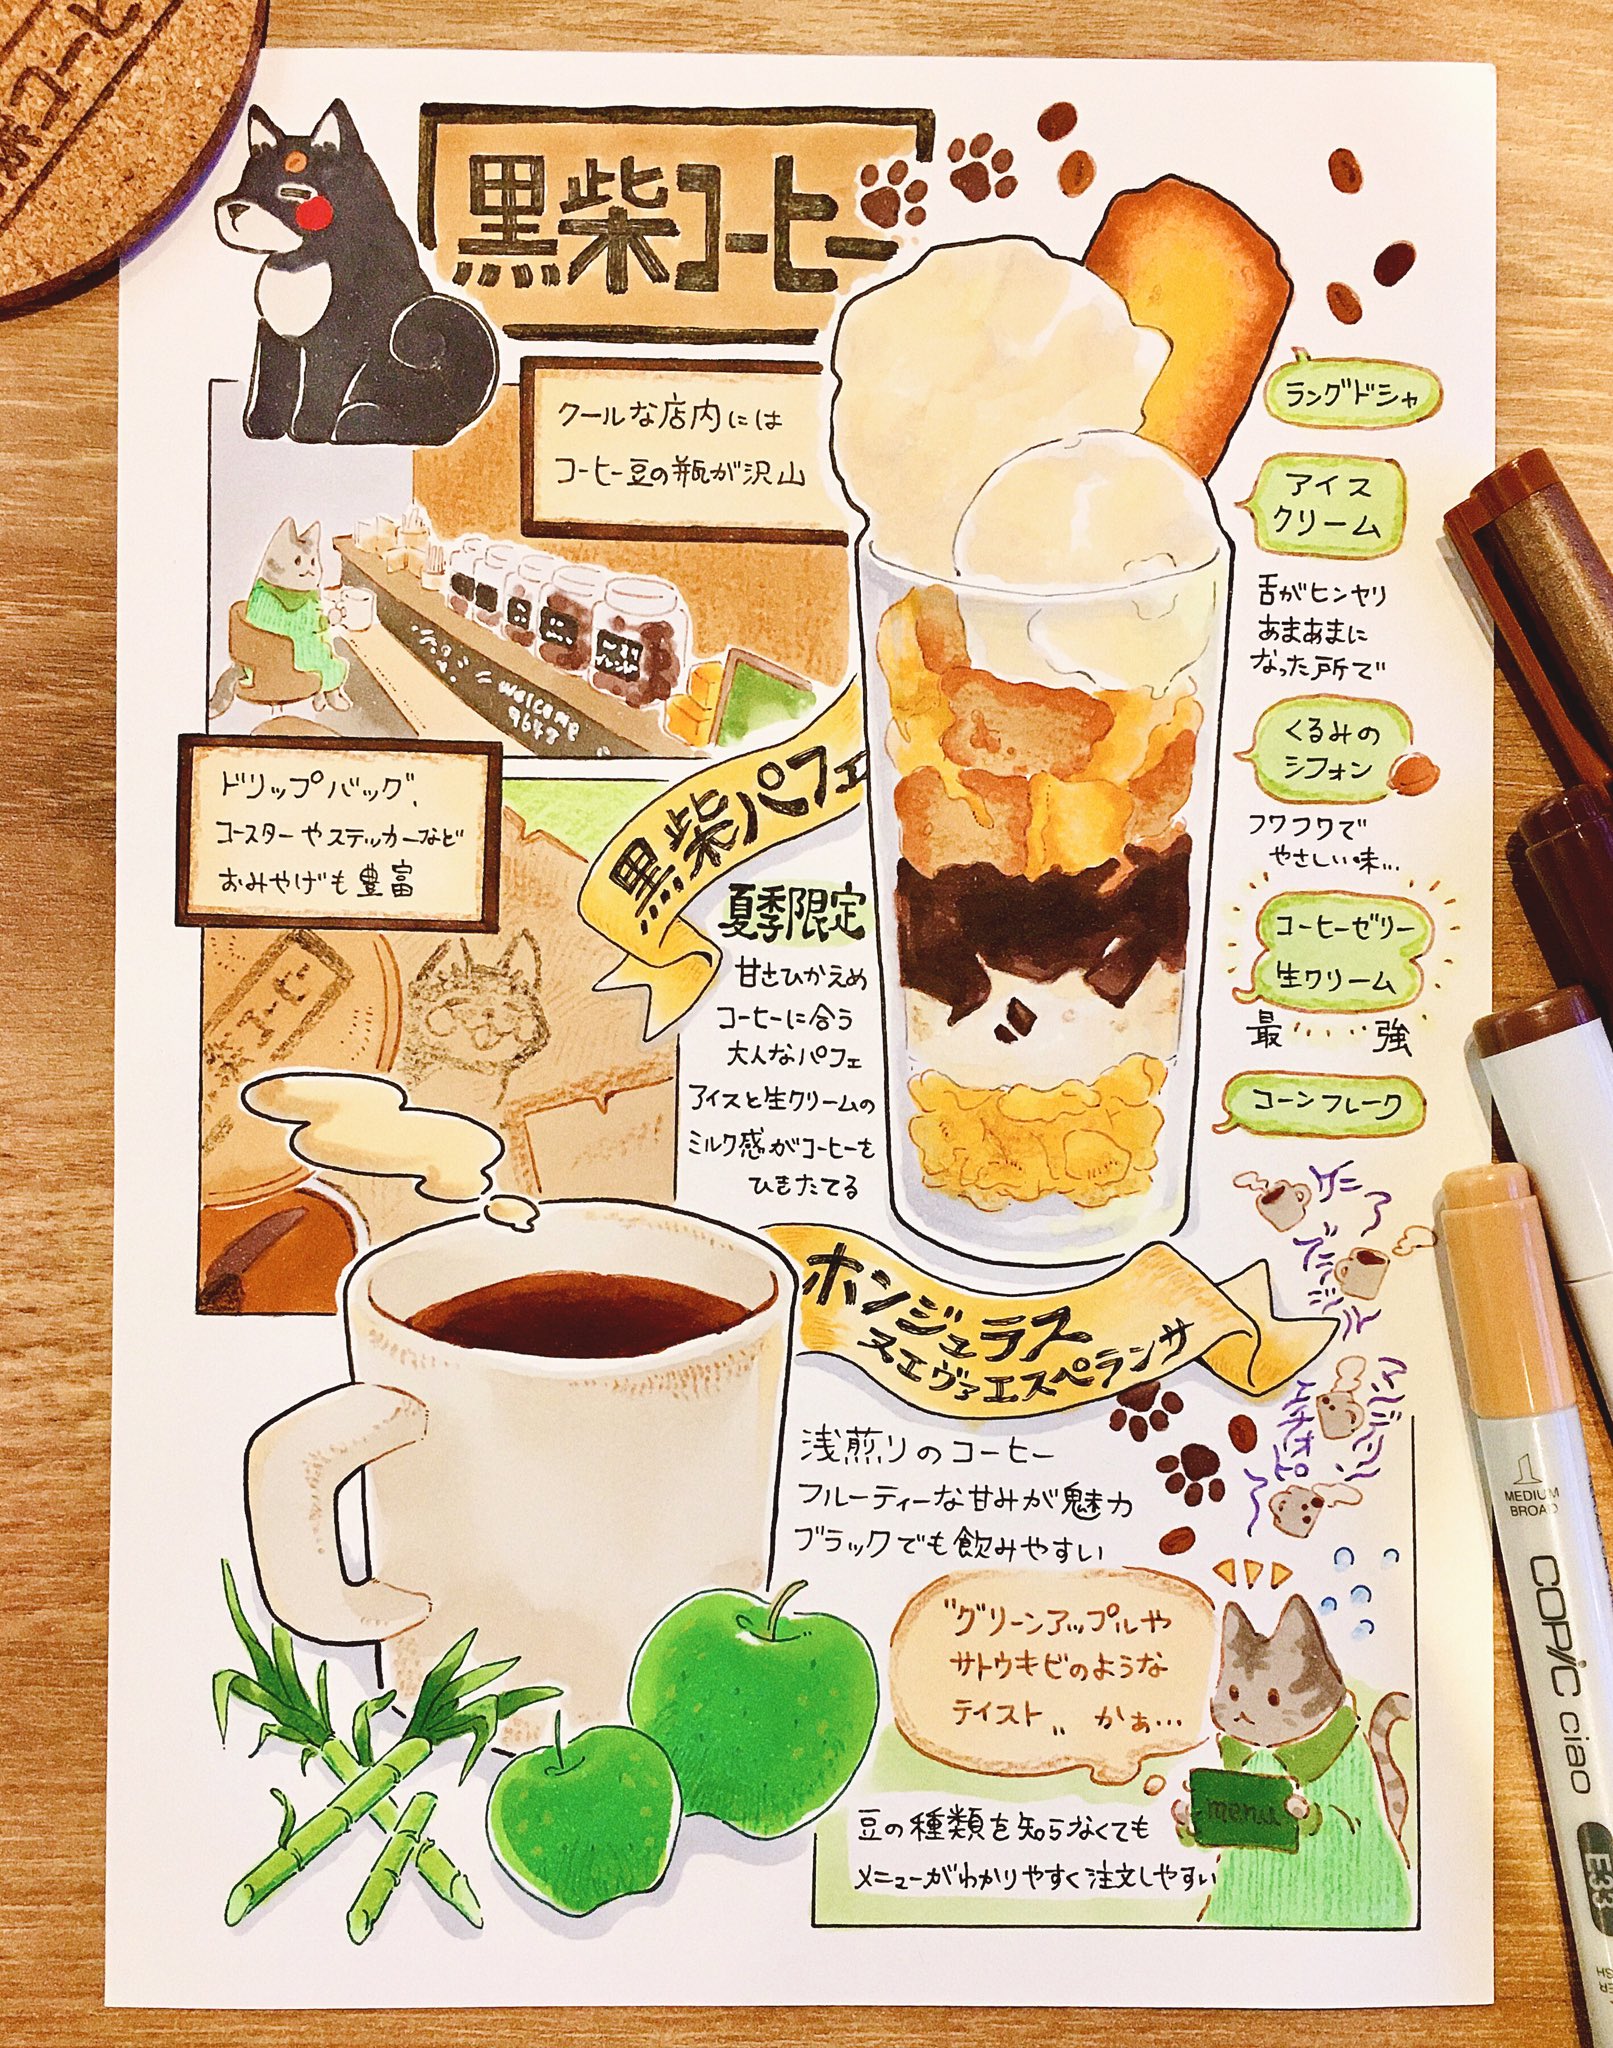 黒柴コーヒー
クールな店内には
コーヒー豆の瓶が沢山
welcome
9648
ドリップバッグ、
コースターやステッカーなど
おみやげも豊富
黒柴パフェ
夏季限定
甘さひかえめ
コーヒーに合う
大人なパフェ
アイスと生クリームの
ミルク感がコーヒーを
ひきたてる
ラングドシャ
アイス
クリーム
舌がヒンヤリ
あまあまに
なった所で
くるみの
シフォン
フワフワで
やさしい味…
コーヒーゼリー
生クリーム
最……強
コーンフレーク
ホンジュラス
ヌエヴァエスペランサ
浅煎りのコーヒー
フルーティーな甘みが魅力
ブラックでも飲みやすい
"グリーンアップルや
サトウキビのような
テイスト" かぁ…
menu
豆の種類を知らなくても
メニューがわかりやすく注文しやすい
MEDIUM
BROAD
COPIC ciao
E33